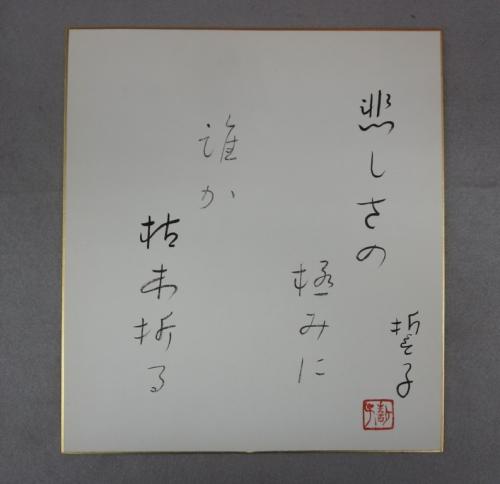 悲しさの
極みに
誰か
枯木折る
誓子